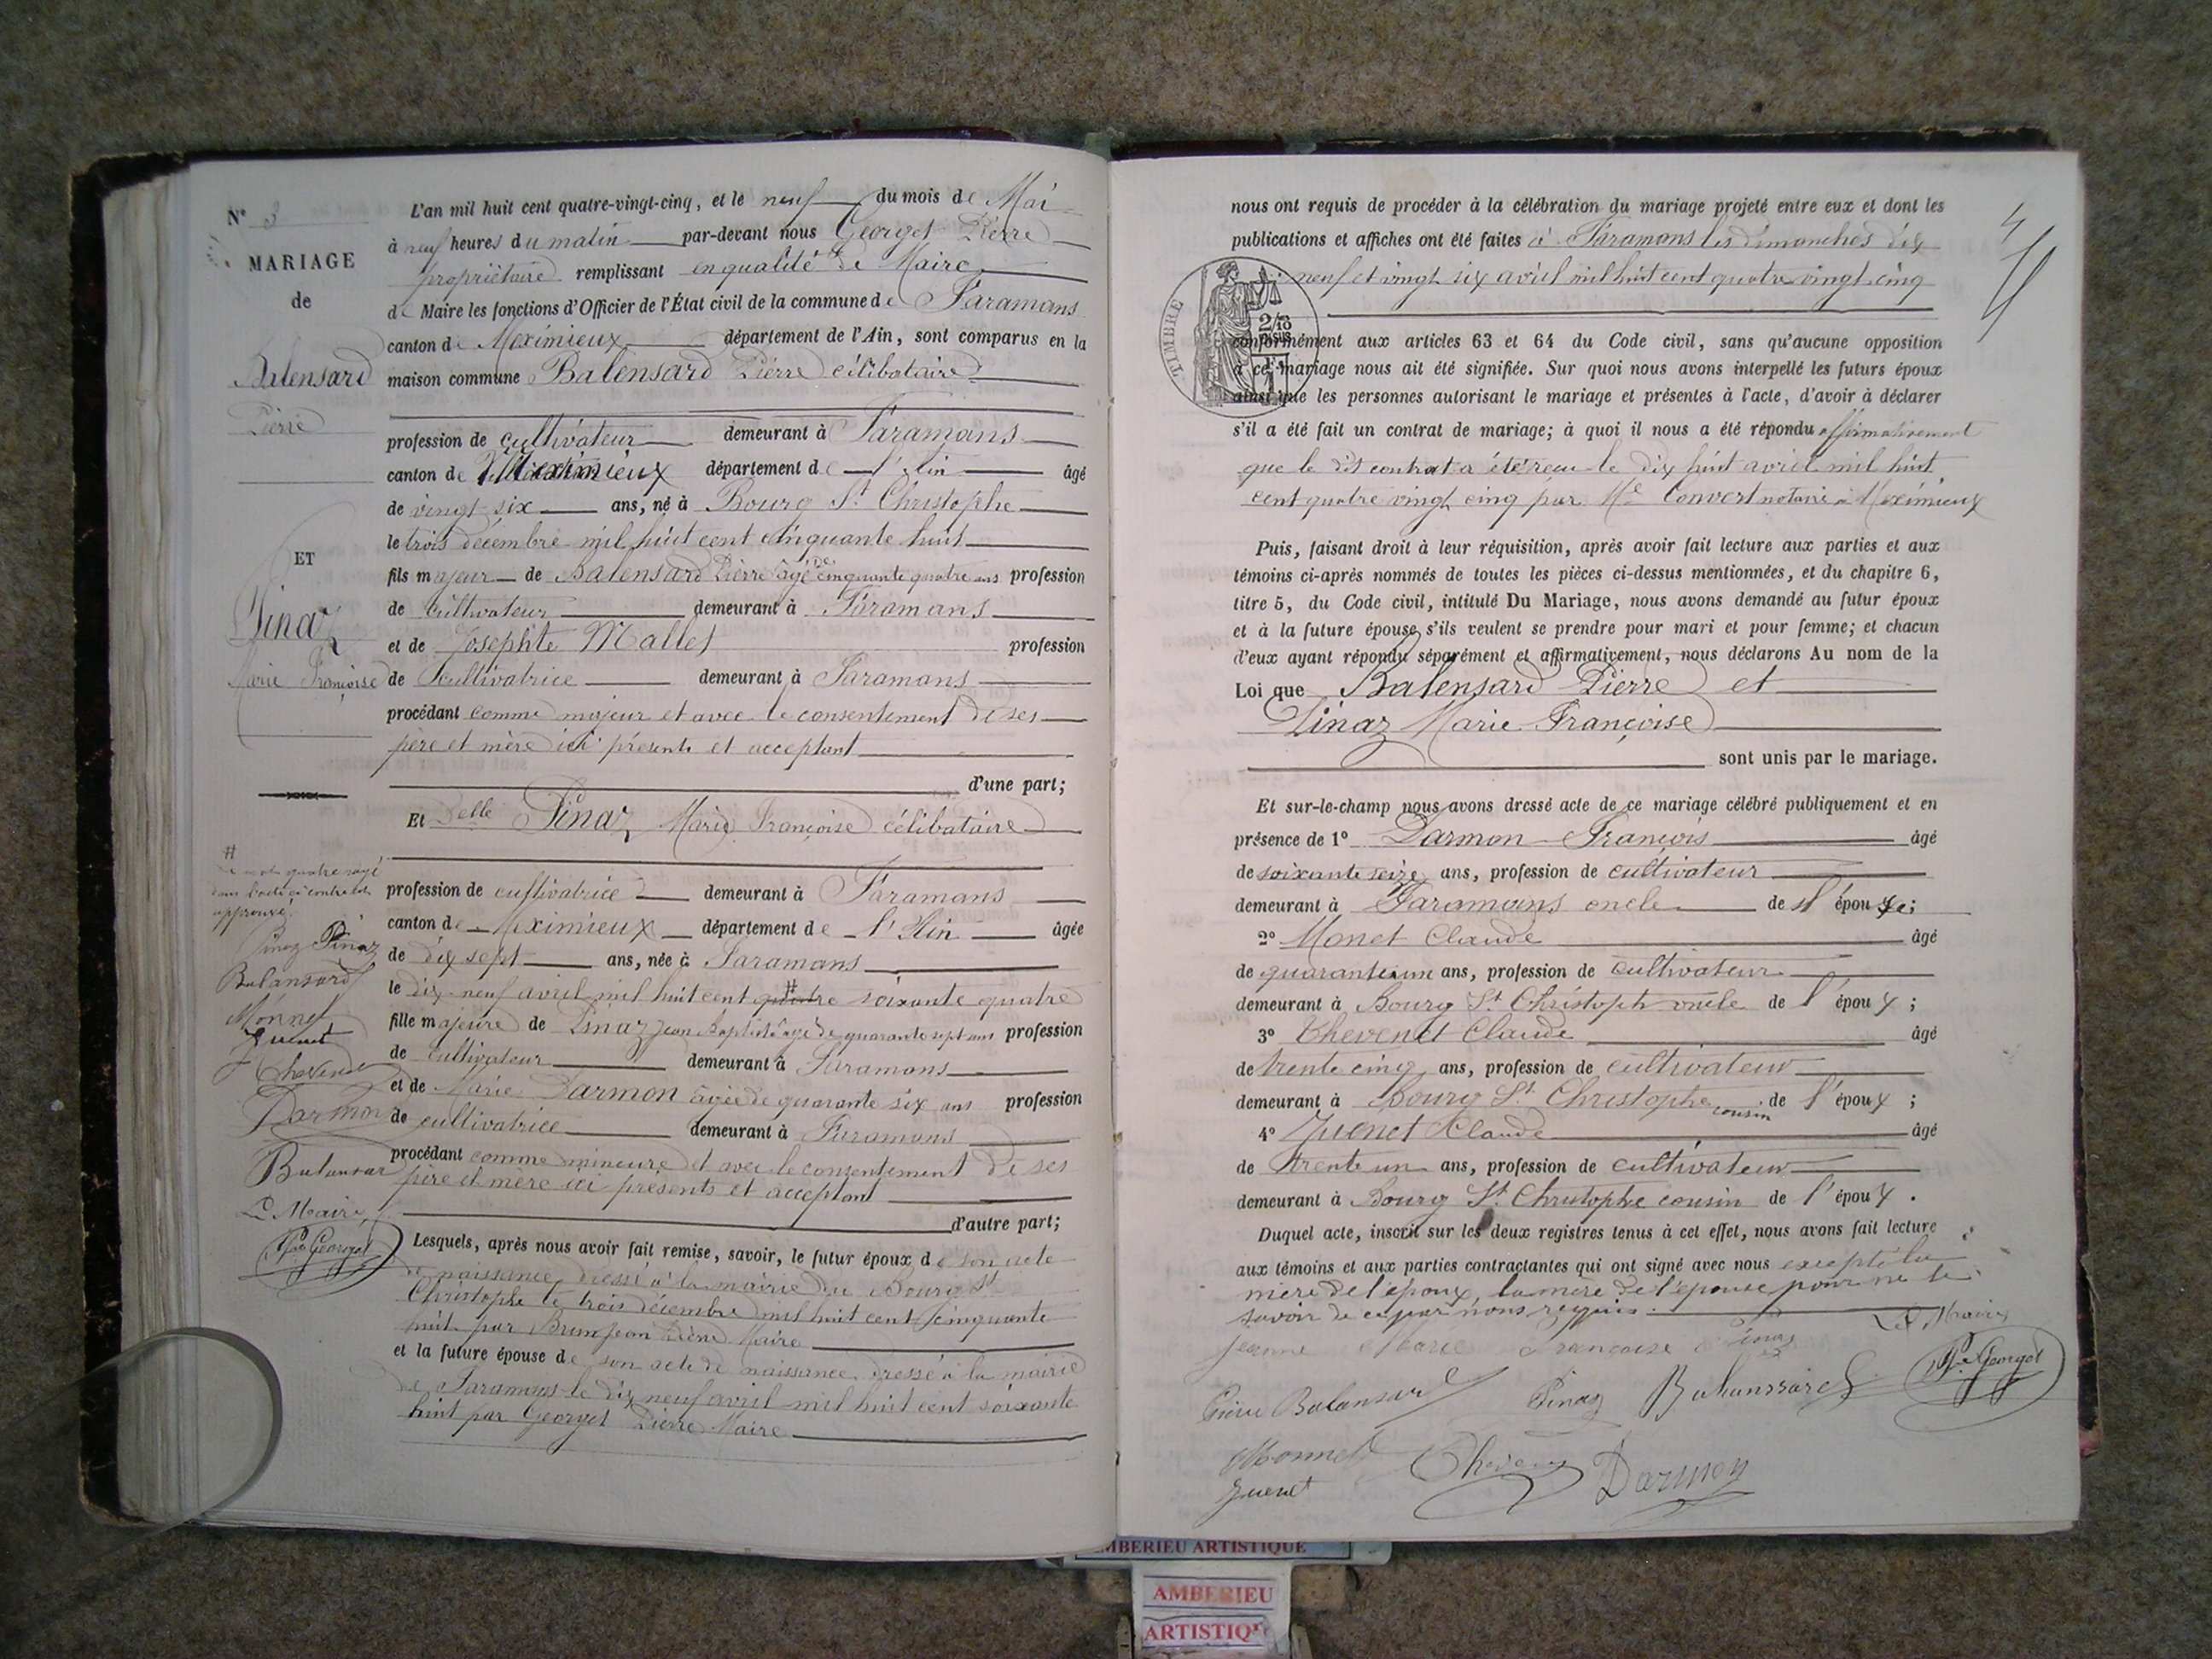 N° 3
MARIAGE
de
Balensard
Pierre
ET
Pinaz
Marie Françoise
L'an mil huit cent quatre-vingt-cinq, et le neuf du mois de Mai
à neuf heures du matin par-devant nous Georget Pierre
propriétaire remplissant en qualité de Maire
de Maire les fonctions d'Officier de l'État civil de la commune de Faramans
canton de Meximieux département de l'Ain, sont comparus en la
maison commune Balensard Pierre célibataire
profession de cultivateur demeurant à Faramans
canton de Meximieux département de l'Ain âgé
de vingt six ans, né à Bourg St Christophe
le trois décembre mil huit cent cinquante huit
fils majeur de Balensard Pierre âgé de cinquante quatre ans profession
de cultivateur demeurant à Faramans
et de Josephte Mallet profession
de cultivatrice demeurant à Faramans
procédant comme majeur et avec le consentement de ses
père et mère ici présents et acceptant
d'une part;
Et Delle Pinaz Marie Françoise célibataire
profession de cultivatrice demeurant à Faramans
canton de Meximieux département de l'Ain âgée
de dix sept ans, née à Faramans
le dix-neuf avril mil huit cent quatre soixante quatre
fille majeure de Pinaz Jean Baptiste âgé de quarante sept ans profession
de cultivateur demeurant à Faramans
et de Marie Darmon âgée de quarante six ans profession
de cultivatrice demeurant à Faramans
procédant comme mineure et avec le consentement de ses
père et mère ici présents et acceptant
d'autre part;
Lesquels, après nous avoir fait remise, savoir, le futur époux de son acte
de naissance dressé à la mairie de Bourg St
Christophe le trois décembre mil huit cent cinquante
huit par Brun Jean Pierre Maire
et la future épouse de son acte de naissance dressé à la mairie
de Faramans le dix neuf avril mil huit cent soixante
huit par Georget Pierre Maire
#
mot quatre rayé
dans l'acte ci contre
approuvé
Pinaz Pinaz
Balansard
Monnet
Juenet
Thevenet
Darmon
Balansar
Le Maire
Pre Georget
nous ont requis de procéder à la célébration du mariage projeté entre eux et dont les
publications et affiches ont été faites à Faramans les dimanches dix
neuf et vingt six avril mil huit cent quatre vingt cinq
TIMBRE
conformément aux articles 63 et 64 du Code civil, sans qu'aucune opposition
à ce mariage nous ait été signifiée. Sur quoi nous avons interpellé les futurs époux
ainsi que les personnes autorisant le mariage et présentes à l'acte, d'avoir à déclarer
s'il a été fait un contrat de mariage; à quoi il nous a été répondu affirmativement
que le dit contrat a été reçu le dix huit avril mil huit
cent quatre vingt cinq par Me Convert notaire à Meximieux
Puis, faisant droit à leur réquisition, après avoir fait lecture aux parties et aux
témoins ci-après nommés de toutes les pièces ci-dessus mentionnées, et du chapitre 6,
titre 5, du Code civil, intitulé Du Mariage, nous avons demandé au futur époux
et à la future épouse s'ils veulent se prendre pour mari et pour femme; et chacun
d'eux ayant répondu séparément et affirmativement, nous déclarons Au nom de la
Loi que Balensard Pierre et
Pinaz Marie Françoise
sont unis par le mariage.
Et sur-le-champ nous avons dressé acte de ce mariage célébré publiquement et en
présence de 1° Darmon François âgé
de soixante seize ans, profession de cultivateur
demeurant à Faramans oncle de l'épouse;
2° Monet Claude âgé
de quarante un ans, profession de cultivateur
demeurant à Bourg St Christoph oncle de l'époux;
3° Thevenet Claude âgé
de trente cinq ans, profession de cultivateur
demeurant à Bourg St Christophe cousin de l'époux;
4° Juenet Claude âgé
de trente un ans, profession de cultivateur
demeurant à Bourg St Christophe cousin de l'époux.
Duquel acte, inscrit sur les deux registres tenus à cet effet, nous avons fait lecture
aux témoins et aux parties contractantes qui ont signé avec nous excepté la
mère de l'époux, la mère de l'épouse pour ne le
savoir de ce par nous requis.
Le Maire
Jeanne Marie Françoise Pinaz
Pierre Balansard Pinaz Balanssard Pre Georget
Monnet Thevenet Darmon
Juenet
AMBERIEU ARTISTIQUE
AMBERIEU
ARTISTIQUE